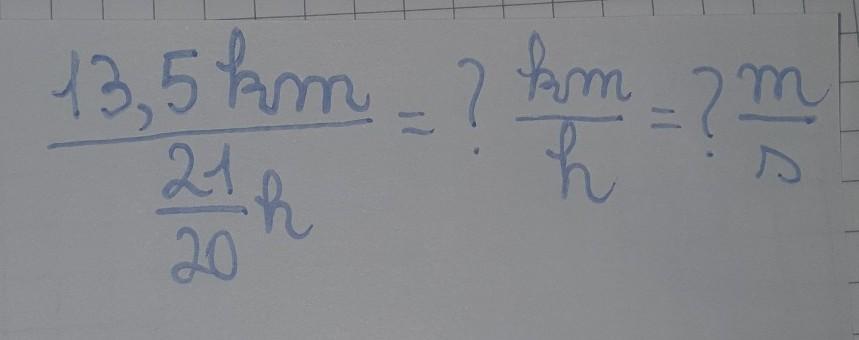 13,5 km / (21/20 h) = ? km/h = ? m/s